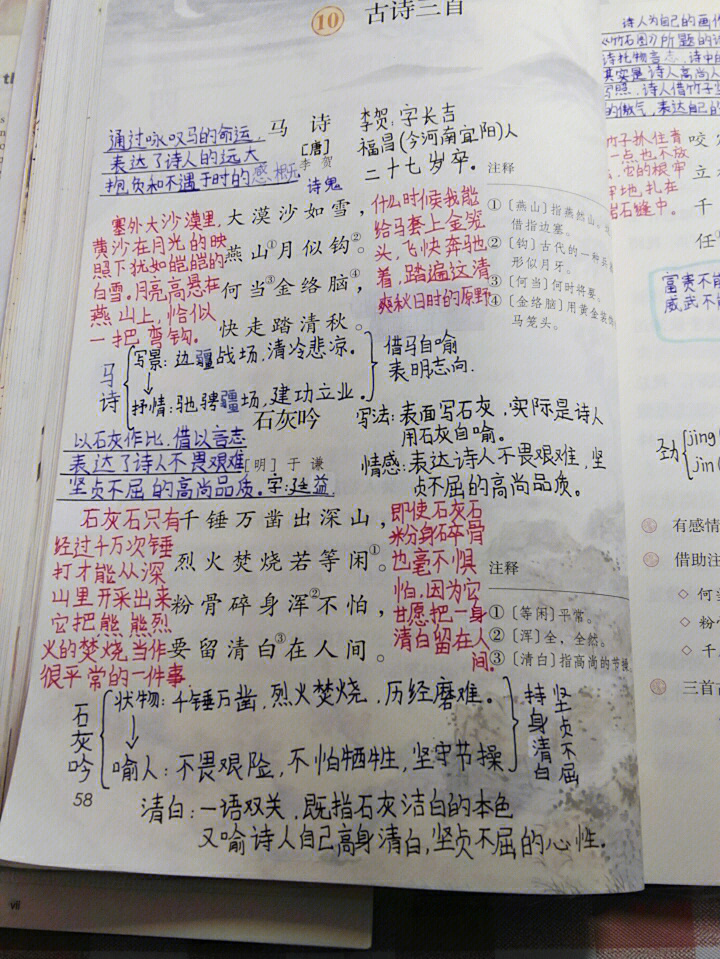 10 古诗三首
马诗
[唐] 李贺
诗鬼
通过咏叹马的命运，
表达了诗人的远大
抱负和不遇于时的感慨
李贺：字长吉
福昌(今河南宜阳)人
二十七岁卒。
大漠沙如雪，
燕山①月似钩②。
何当③金络脑④，
快走踏清秋。
塞外大沙漠里，
黄沙在月光的映
照下犹如皑皑的
白雪。月亮高悬在
燕山上，恰似
一把弯钩。
什么时候我能
给马套上金笼
头，飞快奔驰
着，踏遍这清
爽秋日时的原野
注释
①〔燕山〕指燕然山。
借指边塞。
②〔钩〕古代的一种兵
形似月牙。
③〔何当〕何时将要。
④〔金络脑〕用黄金装饰
马笼头。
马诗
写景：边疆战场，清冷悲凉。
抒情：驰骋疆场，建功立业。
借马自喻
表明志向.
石灰吟
[明] 于谦
字：廷益.
以石灰作比，借以言志
表达了诗人不畏艰难
坚贞不屈的高尚品质。
写法：表面写石灰，实际是诗人
用石灰自喻。
情感：表达诗人不畏艰难，坚
贞不屈的高尚品质。
千锤万凿出深山，
烈火焚烧若等闲①。
粉骨碎身浑②不怕，
要留清白③在人间。
石灰石只有
经过千万次锤
打才能从深
山里开采出来
它把熊熊烈
火的焚烧当作
很平常的一件事
即使石灰石
粉身碎骨
也毫不惧
怕，因为它
甘愿把一身
清白留在人
间。
注释
①〔等闲〕平常。
②〔浑〕全，全然。
③〔清白〕指高尚的节操
石灰吟
状物：千锤万凿，烈火焚烧，历经磨难。
喻人：不畏艰险，不怕牺牲，坚守节操
持身清白
坚贞不屈
58
清白：一语双关，既指石灰洁白的本色
又喻诗人自己高身清白，坚贞不屈的心性.
vii
诗人为自己的画作
《竹石图》所题的诗
诗托物言志，诗中的
其实是诗人高尚人
写照，诗人借竹子坚
的傲气，表达自己的
竹子抓住青
一点也不放
它的根牢
牢地扎在
岩石缝中。
咬
立
千
任
富贵不能
威武不
劲 jìng
jìn
有感情
借助注
◇ 何当
◇ 粉
◇ 千
三首古